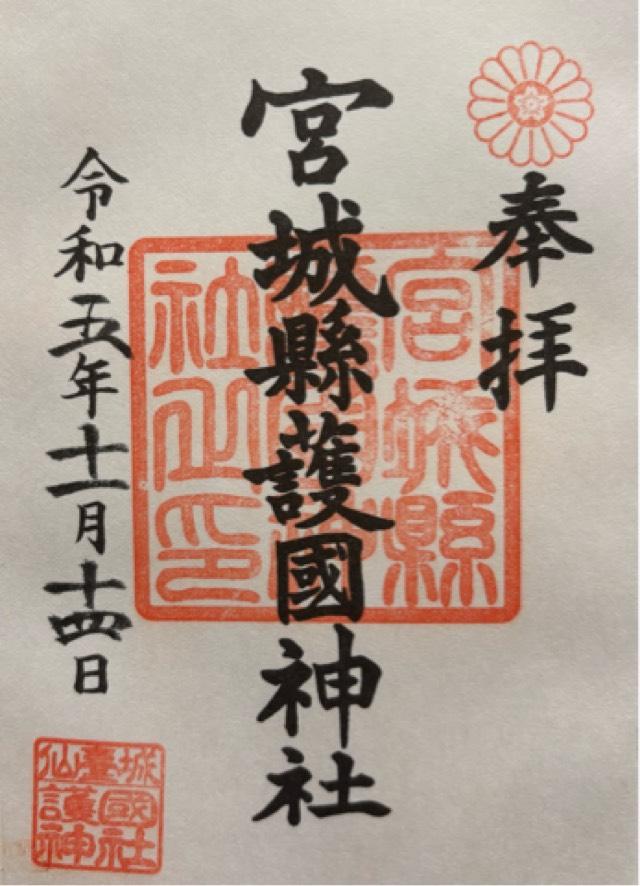 奉拝
宮城縣護國神社
令和五年十一月十四日
宮城縣
社之印
仙臺城
護國
神社